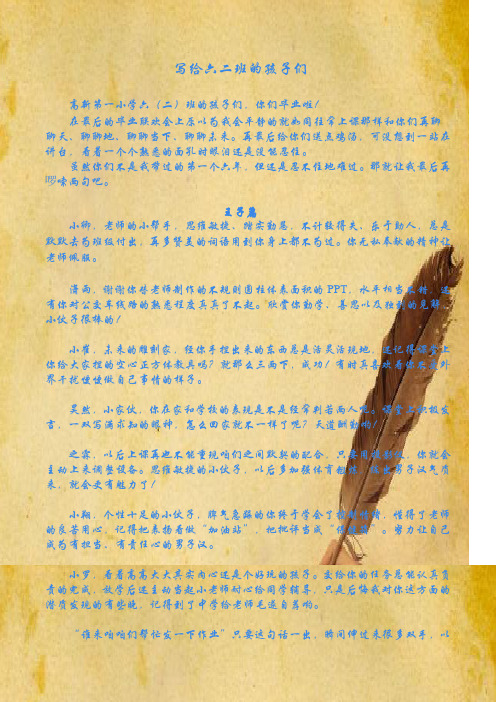 写给六二班的孩子们
高新第一小学六（二）班的孩子们，你们毕业啦！
在最后的毕业联欢会上原以为我会平静的就如同往常上课那样和你们再聊
聊天、聊聊地、聊聊当下、聊聊未来。再最后给你们送点鸡汤，可没想到一站在
讲台，看着一个个熟悉的面孔时眼泪还是没能忍住。
虽然你们不是我带过的第一个六年，但还是忍不住地难过。那就让我最后再
啰嗦两句吧。
王子篇
小卿，老师的小帮手，思维敏捷、踏实勤恳，不计较得失，乐于助人，总是
默默去为班级付出，再多赞美的词语用到你身上都不为过。你无私奉献的精神让
老师佩服。
清雨，谢谢你替老师制作的不规则圆柱体表面积的PPT，水平相当
有你对公交车线路的熟悉程度真真了不起。欣赏你勤学、善思以及独到的见解，
小伙子很棒的！
小崔，未来的雕刻家，经你手捏出来的东西总是活灵活现地，还记得课会上
你给大家捏的空心正方体教具吗？就那么三两下，成功！有时真喜欢看你
界干扰慢慢做自己事情的样子。
昊然，小家伙，你在家和学校的表现是不是经常判若两人呢。课堂上积极发
言，一双写满求知的眼神，怎么回家就不一样了呢？天道酬勤哟！
之霖，以后上课再也不能重现咱们之间默契的配合，只要
你就会
主动上来调整设备。思维敏捷的小伙子，以后多加强体育锻炼，
男子汉气质
来，就会更有魅力了！
小翔，个性十足的小伙子，脾气急躁的你终于学会了
懂得了老师
的良苦用心，记得把表扬看做“加油站”，把批评当成“
”。努力让自己
成为有担当，有责任心的男子汉。
小罗，看着高高大大其实内心还是个好玩的孩子。交给你的任务总能认真负
责的完成，放学后还主动当起小老师耐心给同学辅导，只是后悔我对你这方面的
潜质发现的有些晚，记得到了中学给老师毛遂自荐哟。
“谁来咱咱们帮忙发一下作业”只要这句话一出，瞬间伸过来很多双手，以